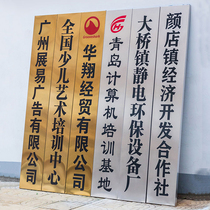 广州展易广告有限公司
全国少儿艺术培训中心
华翔经贸有限公司
青岛计算机培训基地
大桥镇静电环保设备厂
颜店镇经济开发合作社